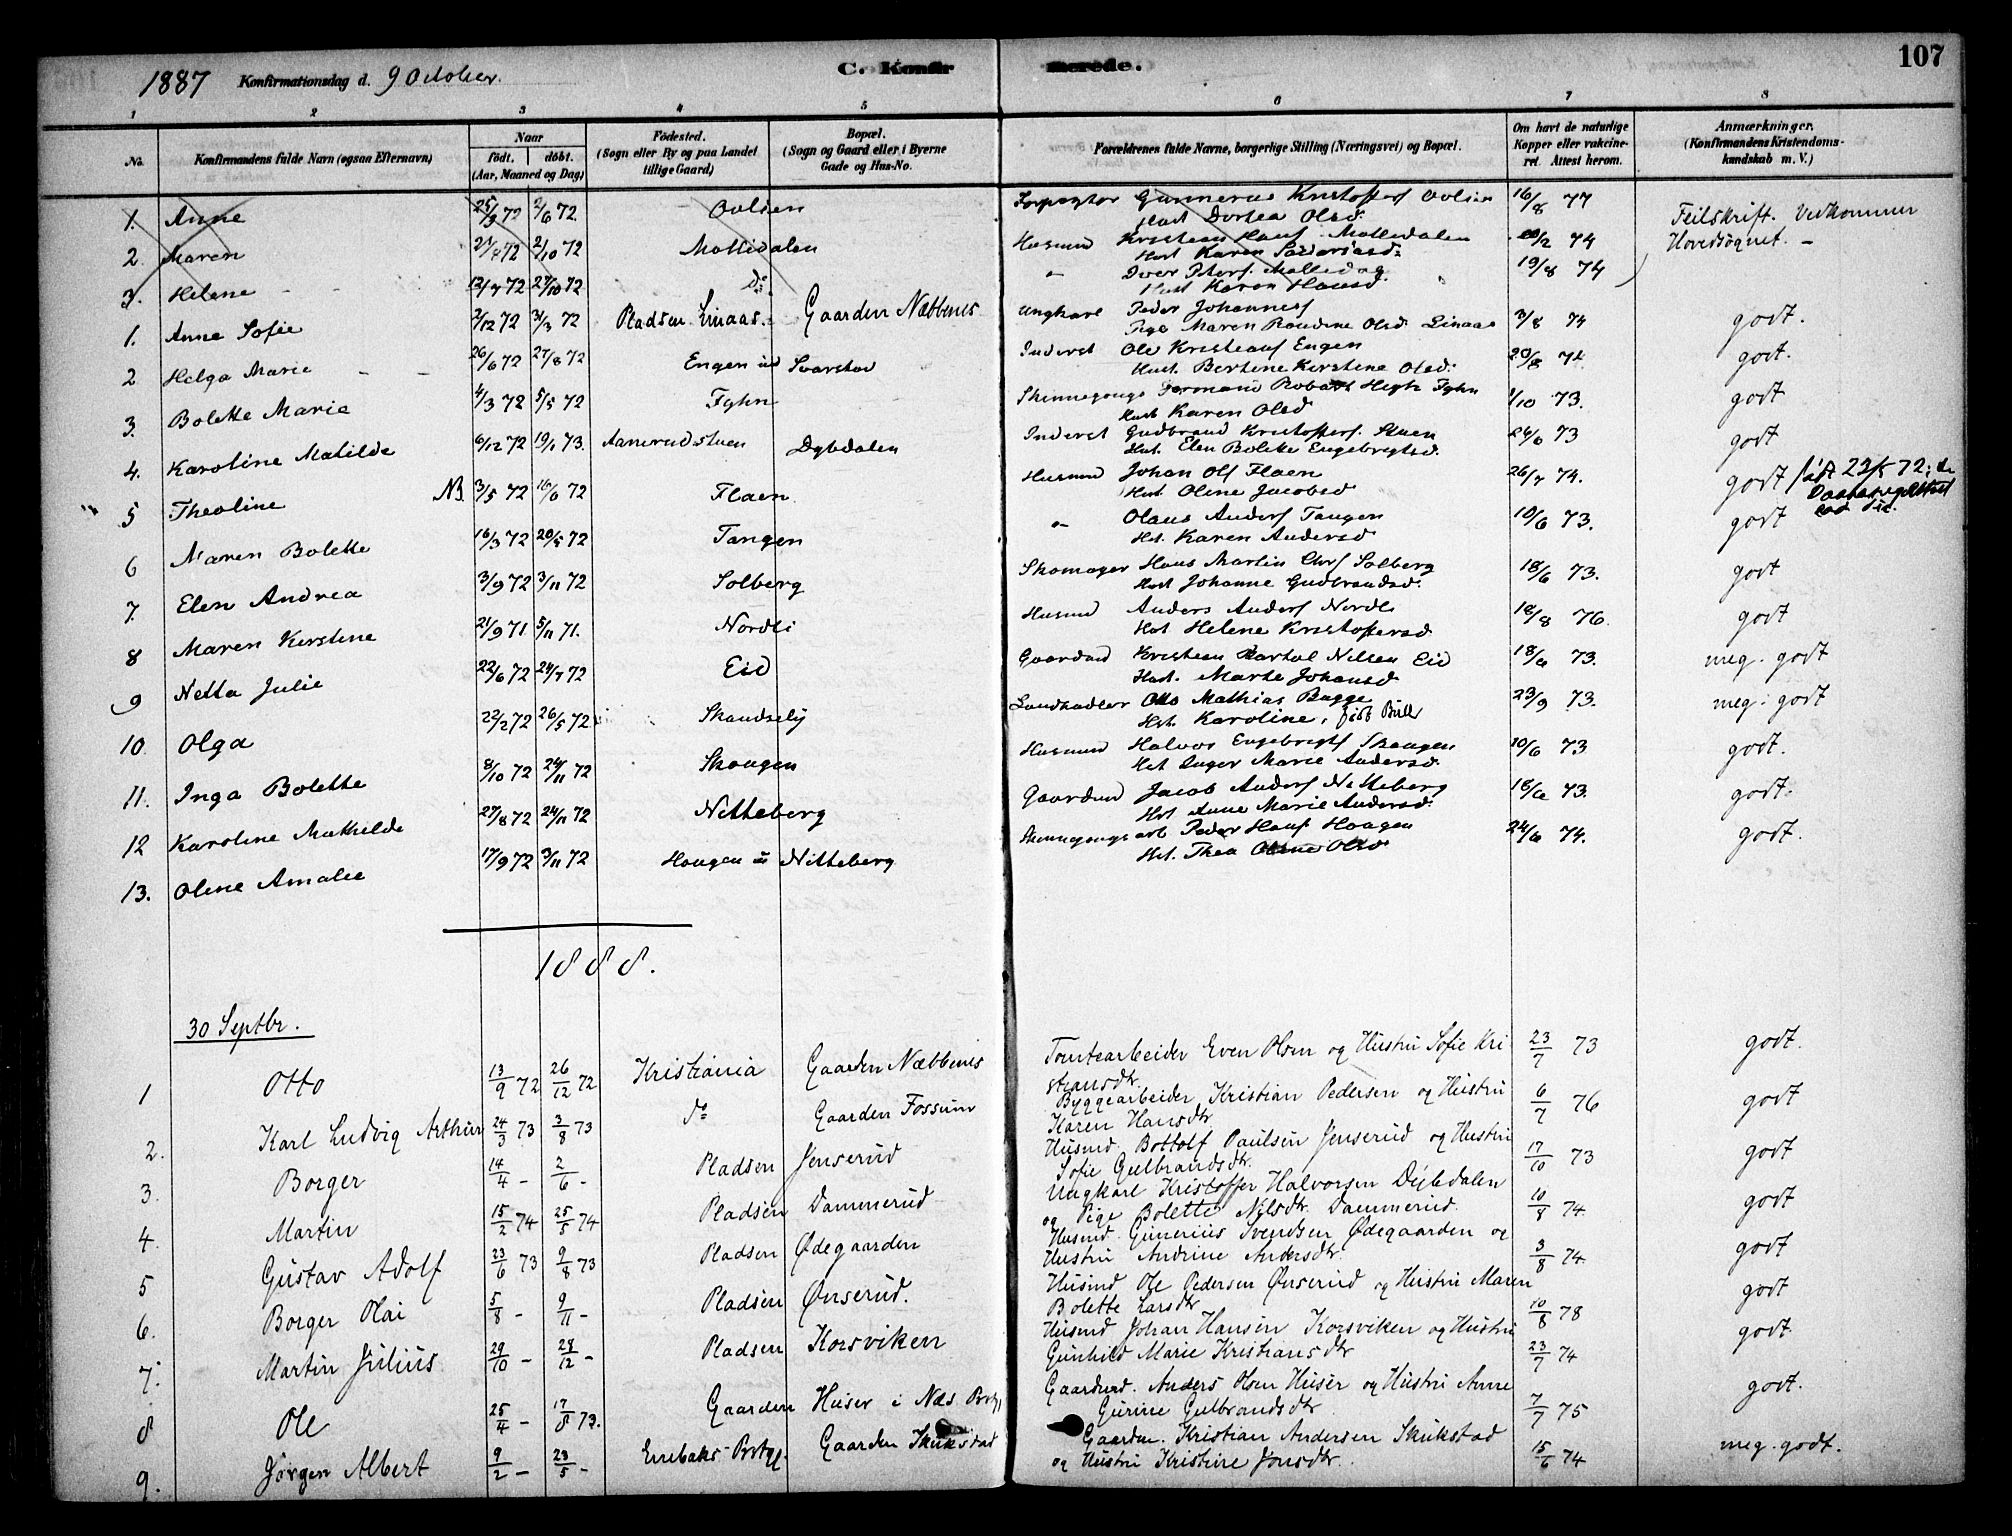 107
1887 Konfirmationsdag d. 9 October. C. Konfir merede.
1 2 3 4 5 6 7 8
No. Konfirmandens fulde Navn (ogsaa Efternavn) Naar født. døbt. (Aar, Maaned og Dag) Fødested. (Sogn eller By og paa Landet tillige Gaard) Bopæl. (Sogn og Gaard eller i Byerne Gade og Hus-No. Forældrenes fulde Navne, borgerlige Stilling (Næringsvei) og Bopæl. Om havt de naturlige Kopper eller vakcineret. Attest herom. Anmærkninger. (Konfirmandens Kristendomskundskab m. V.)
1. Anne 25/3 72 2/6 72 Ovlsen Forpagter Gunnerus Kristoffers Ovlsen
Hust Dortea Olsd. 16/8 77 Feilskrift. Vedkommer
2. Maren 2/10 72 Mollidalen Husmd Kristian Hans. Mollidalen
Hust Karen Pedersd. 2 74 Hovedsognet. -
3. Helene - - 27/10 72 do Iver Peters. Molledag
Hust Karen Hansd. 19/8 74
1. Anne Sofie 2/12 72 31/3 72 Pladsen Linaas. Gaarden Næbbenes Ungkarl Peder Johannesf
Pige Maren Randine Olsd. Linaas 3/8 74 godt.
2 Helga Marie - - 26/6 72 27/8 72 Engen ud Svarstad Inderst Ole Kristiansf Engen
Hust. Bertine Kirstine Olsd. 20/8 74. godt.
3. Bolette Marie 4/3 72 5/5 72 Fyhn Skinnegangs Robert Fyhn
Hust Karen Olsd 1/10 73. godt
4. Karoline Matilde 6/12 72 19/1 73. Aamrudstuen Dybdalen Inderst Gudbrand Kristoffers. Stuen
Hst. Elen Bolette Engebregtsd. 24/6 73 godt
5 Theoline NB. 3/5 72 16/6 72 Flaen. Husmd Johan Olsf Flaen
Hst. Oline Jacobsd 26/7 74. godt født 23/5 72; se
6 Maren Bolette 16/3 72 20/5 72 Tangen - Olaus Andersf Tangen
Hst. Karen Andersd 10/6 73. godt
7. Elen Andrea 3/9 72 3/11 72 Solberg Skomager Hans Martin Chrf Solberg
Hust Johanne Gudbrandsd. 18/6 73. godt
8 Maren Kirstine 21/9 71 5/11 71. Nordli Husmd Anders Andersf Nordli
Hst Helene Kristoffersd 18/8 76. godt
9 Netta Julie 22/6 72 24/7 72 Eid Gaardmd Kristian Bartol Nilsen Eid
Hust. Marte Johansd 18/6 73. meg. godt
10. Olga 22/2 72 26/5 72 Skandsely Landhadler Otto Mathias Bagge
Hst. Karoline, født Bull 23/9 73. meg. godt
11. Inga Bolette 8/10 72 24/11 72 Skougen Husmd Halvor Engebregtsf Skougen
Hst Inger Marie Andersd 10/6 73 godt.
12 Karoline Mathilde 27/8 72 24/11 72 Netteberg Gaardmd Jacob Andersf Netteberg
Hst Anne Marie Andersd. 18/6 73. godt.
13. Oline Amalie 17/9 72 3/11 72 Hougen u Nitteberg Skinnegangs arb Peder Hansf Hougen
Hst. Thea Olsd 24/6 74. godt.
1888.
30 Septbr.
1 Otto 13/9 72 26/12 72 Kristiania Gaarden Næbbenes Tomtearbeider Even Olsen og Hustru Sofie Kri
stiansdtr. 23/7 73 godt.
2. Karl Ludvig Arthur 24/3 73 3/8 73 do Gaarden Fossum Byggearbeider Kristian Pedersen og Hustru
Karen Hansdtr 6/7 76 godt
3. Borger 14/4 - 2/6 - Pladsen Jenserud Husmd. Bottolf Paulsen Jenserud og Hustru
Sofie Gulbrandsdtr. 17/10 73 godt
4. Martin 15/2 74 25/5 74 Pladsen Dammerud Ungkarl Kristoffer Halvorsen Dybdalen
og Pige Bolette Nilsdtr. Dammerud. 10/8 74. godt
5 Gustav Adolf 23/6 73 9/8 73 Pladsen Ødegaarden Husmd. Gunerius Svendsen Ødegaarden og
Hustru Andrine Andersdtr. 3/8 74. godt
6. Borger Olai 5/8 - 9/11 - Pladsen Ønserud. Husmd Ole Pedersen Ønserud og Hustru Maren
Bolette Larsdtr 10/8 78 godt
7. Martin Julius 29/10 - 28/12 - Pladsen Korsviken Husmd Johan Hansen Korsviken og Hustru
Gunhild Marie Kristiansdtr 23/7 74 godt.
8 Ole 25/4 - 17/8 73. Gaarden Huser i Næs Prstgj Gaardmd. Anders Olsen Huser og Hustru Anne
Gurine Gulbrandsdtr. 7/7 75 godt.
9. Jørgen Albert 9/2 - 23/5 - Enebaks Prstgj. Gaarden Skukstad Gaardm. Kristian Andersen Skukstad
og Hustru Kristine Jonsdtr. 15/6 74 meg. godt.